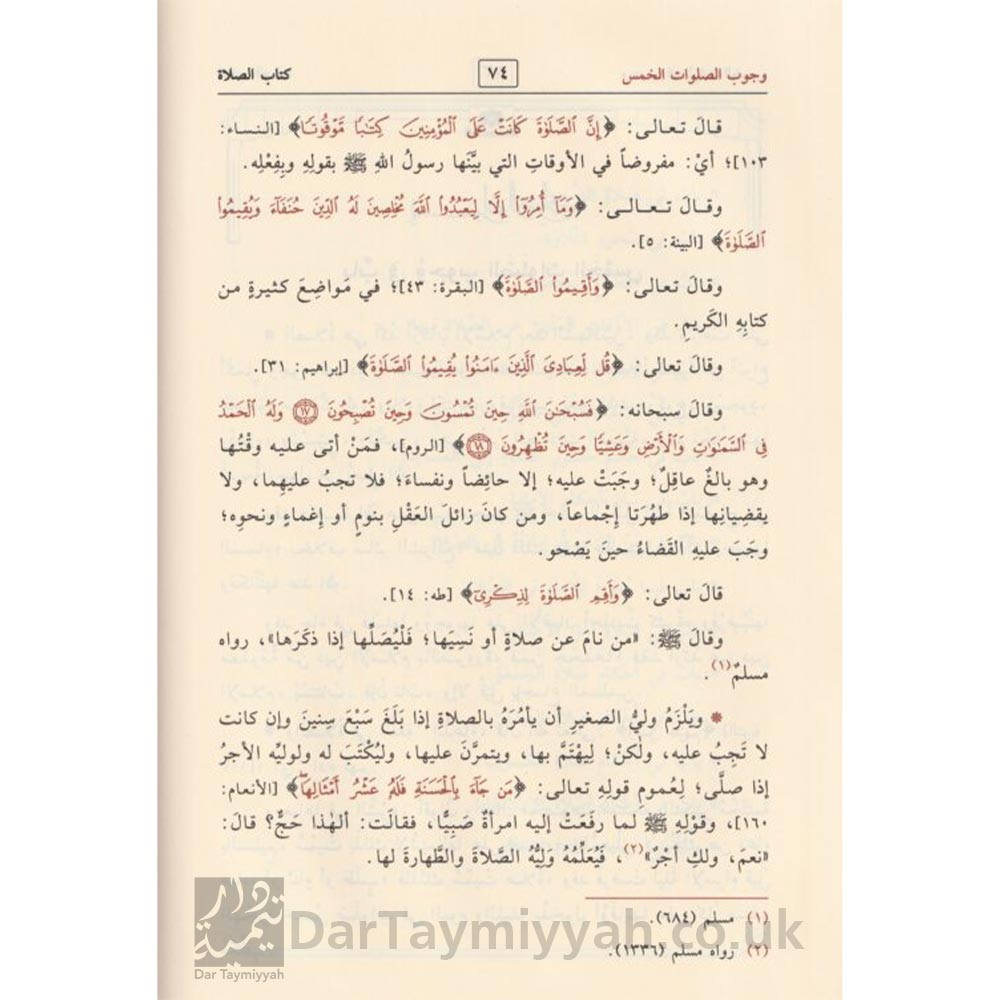 وجوب الصلوات الخمس ٧٤ كتاب الصلاة
قالَ تعالى: ﴿إِنَّ ٱلصَّلَوٰةَ كَانَتْ عَلَى ٱلْمُؤْمِنِينَ كِتَٰبًا مَّوْقُوتًا﴾ [النساء:
١٠٣]؛ أيْ: مفروضاً في الأوقاتِ التي بيَّنَها رسولُ اللهِ ﷺ بقولِهِ وبِفِعْلِه.
وقالَ تعالى: ﴿وَمَآ أُمِرُوٓا۟ إِلَّا لِيَعْبُدُوا۟ ٱللَّهَ مُخْلِصِينَ لَهُ ٱلدِّينَ حُنَفَآءَ وَيُقِيمُوا۟
ٱلصَّلَوٰةَ﴾ [البينة: ٥].
وقالَ تعالى: ﴿وَأَقِيمُوا۟ ٱلصَّلَوٰةَ﴾ [البقرة: ٤٣]؛ في مَواضِعَ كثيرةٍ من
كتابِهِ الكَريمِ.
وقالَ تعالى: ﴿قُل لِّعِبَادِىَ ٱلَّذِينَ ءَامَنُوا۟ يُقِيمُوا۟ ٱلصَّلَوٰةَ﴾ [إبراهيم: ٣١].
وقالَ سبحانه: ﴿فَسُبْحَٰنَ ٱللَّهِ حِينَ تُمْسُونَ وَحِينَ تُصْبِحُونَ ١٧ وَلَهُ ٱلْحَمْدُ
فِى ٱلسَّمَٰوَٰتِ وَٱلْأَرْضِ وَعَشِيًّا وَحِينَ تُظْهِرُونَ ١٨﴾ [الروم]، فمَنْ أتى عليه وقْتُها
وهو بالغٌ عاقِلٌ؛ وجَبَتْ عليه؛ إلا حائِضاً ونفساءَ؛ فلا تجبُ عليهِما، ولا
يقضِيانِها إذا طهُرَتا إجْماعاً، ومن كانَ زائلَ العَقْلِ بنومٍ أو إغماءٍ ونحوِه؛
وجَبَ عليهِ القَضاءُ حينَ يَصْحو.
قالَ تعالى: ﴿وَأَقِمِ ٱلصَّلَوٰةَ لِذِكْرِىٓ﴾ [طه: ١٤].
وقالَ ﷺ: «من نامَ عن صلاةٍ أو نَسِيَها؛ فَلْيُصَلِّها إذا ذكَرَها»، رواه
مسلمٌ(١).
* ويَلْزَمُ وليُّ الصغيرِ أن يأمُرَهُ بالصلاةِ إذا بَلَغَ سَبْعَ سِنينَ وإن كانت
لا تَجِبُ عليه، ولٰكنْ؛ لِيهْتَمَّ بها، ويتمرَّنَ عليها، وليُكْتَبَ له ولوليِّه الأجرُ
إذا صلَّى؛ لِعُمومِ قولِهِ تعالى: ﴿مَن جَآءَ بِٱلْحَسَنَةِ فَلَهُۥ عَشْرُ أَمْثَالِهَا﴾ [الأنعام:
١٦٠]، وقوْلِهِ ﷺ لما رفَعَتْ إليه امرأةٌ صَبِيًّا، فقالَت: ألهٰذا حَجٌّ؟ قالَ:
«نعمَ، ولكِ أجْرٌ»(٢)، فَيُعَلِّمُهُ وَلِيُّهُ الصَّلاةَ والطَّهارةَ لها.
(١) مسلم (٦٨٤).
(٢) رواه مسلم (١٣٣٦).
دار تيمية
Dar Taymiyyah
DarTaymiyyah.co.uk